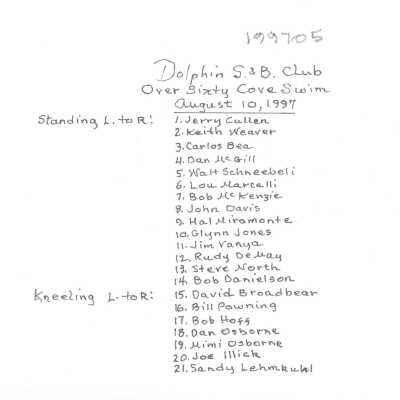 199705
Dolphin S. & B. Club
Over Sixty Cove Swim
August 10, 1997
Standing L. to R: 1. Jerry Cullen
2. Keith Weaver
3. Carlos Bea
4. Dan McGill
5. Walt Schneebeli
6. Lou Marcelli
7. Bob McKenzie
8. John Davis
9. Hal Miramonte
10. Glynn Jones
11. Jim Vanya
12. Rudy DeMay
13. Steve North
14. Bob Danielson
Kneeling L. to R: 15. David Broadbear
16. Bill Powning
17. Bob Hogg
18. Dan Osborne
19. Mimi Osborne
20. Joe Illick
21. Sandy Lehmkuhl